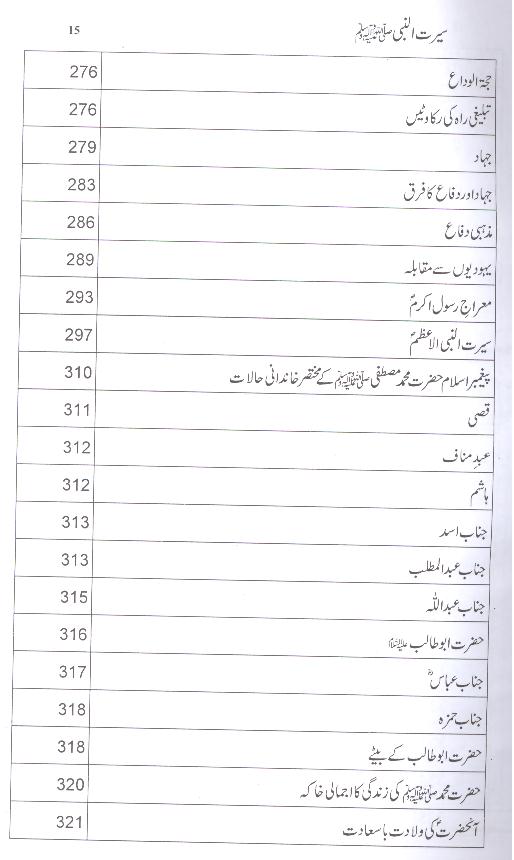 سیرت النبی ﷺ 15
حجۃ الوداع 276
تبلیغی راہ کی رکاوٹیں 276
جہاد 279
جہاد اور دفاع کا فرق 283
مذہبی دفاع 286
یہودیوں سے مقابلہ 289
معراجِ رسول اکرمؐ 293
سیرت النبی الاعظمؐ 297
پیغمبر اسلام حضرت محمد مصطفی ﷺ کے مختصر خاندانی حالات 310
قصی 311
عبدِ مناف 312
ہاشم 312
جناب اسد 313
جناب عبدالمطلب 313
جناب عبداللہ 315
حضرت ابوطالب علیہ السلام 316
جناب عباسؓ 317
جناب حمزہ 318
حضرت ابوطالب کے بیٹے 318
حضرت محمد ﷺ کی زندگی کا اجمالی خاکہ 320
آنحضرتؐ کی ولادت باسعادت 321